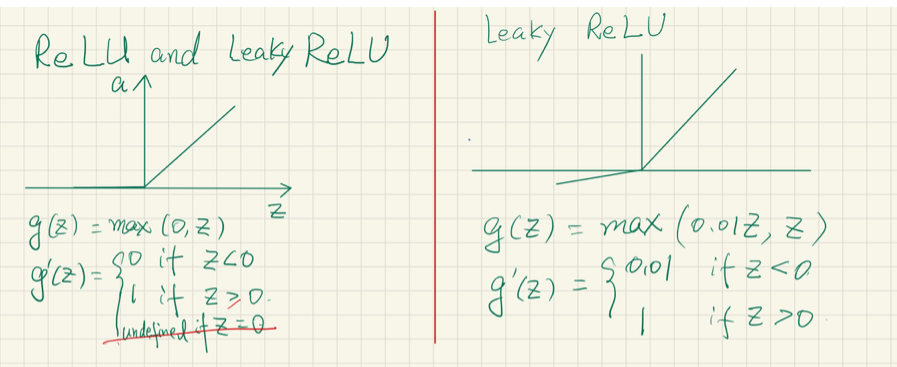 ReLU and Leaky ReLU
a
z
g(z) = max (0, z)
g'(z) = { 0 if z<0
1 if z ≥ 0.
undefined if z = 0
Leaky ReLU
g(z) = max (0.01z, z)
g'(z) = { 0,01 if z < 0
1 if z >0.